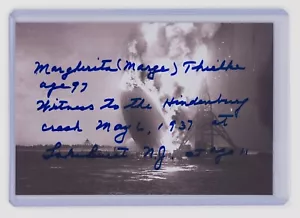 Margherita (Marge) Theilke
age 97
Witness to the Hindenburg
crash May 6, 1937 at
Lakehurst NJ. at age 11